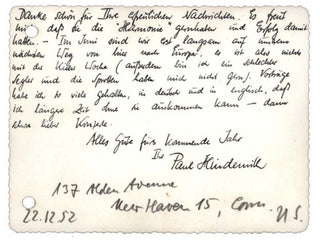 Danke schön für Ihre erfreulichen Nachrichten. Es freut
mich, daß Sie die Harmonie genossen haben und Erfolg damit
hatten. – Im Juni sind wir erst langsam auf unserem
Weg von hier nach Europa, es ist also nichts
mit der Kieler Woche (außerdem bin ich ein schlechter
Segler und die Sportler haben mich nicht gern). Vorträge
habe ich so viele gehalten, in deutsch und in englisch, daß
ich längere Zeit ohne sie auskommen kann – dann
eher lieber Konzerte.
Alles Gute fürs kommende Jahr
Ihr Paul Hindemith
137 Alden Avenue
New Haven 15, Conn.
22.12.52 U.S.